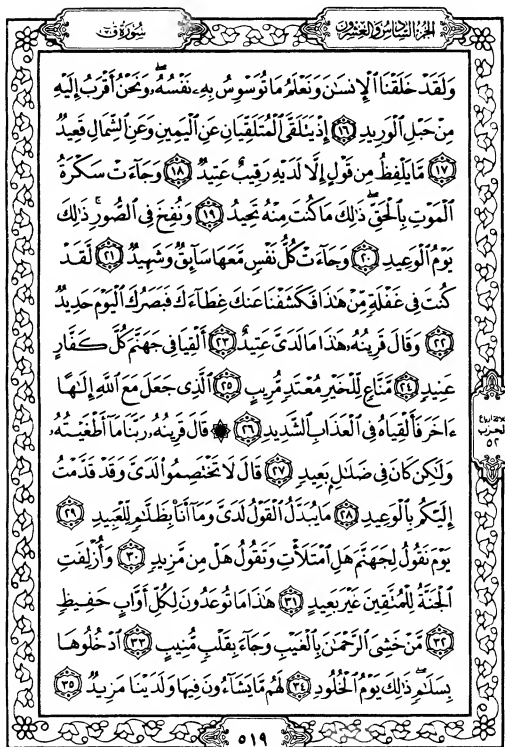 سُورَةُ قٓ
الجُزْءُ السَّادِسُ وَالعِشْرُونَ
وَلَقَدْ خَلَقْنَا ٱلْإِنسَٰنَ وَنَعْلَمُ مَا تُوَسْوِسُ بِهِۦ نَفْسُهُۥ ۖ وَنَحْنُ أَقْرَبُ إِلَيْهِ
مِنْ حَبْلِ ٱلْوَرِيدِ ١٦ إِذْ يَتَلَقَّى ٱلْمُتَلَقِّيَانِ عَنِ ٱلْيَمِينِ وَعَنِ ٱلشِّمَالِ قَعِيدٌ
١٧ مَّا يَلْفِظُ مِن قَوْلٍ إِلَّا لَدَيْهِ رَقِيبٌ عَتِيدٌ ١٨ وَجَآءَتْ سَكْرَةُ
ٱلْمَوْتِ بِٱلْحَقِّ ۖ ذَٰلِكَ مَا كُنتَ مِنْهُ تَحِيدُ ١٩ وَنُفِخَ فِى ٱلصُّورِ ۚ ذَٰلِكَ
يَوْمُ ٱلْوَعِيدِ ٢٠ وَجَآءَتْ كُلُّ نَفْسٍ مَّعَهَا سَآئِقٌ وَشَهِيدٌ ٢١ لَّقَدْ
كُنتَ فِى غَفْلَةٍ مِّنْ هَٰذَا فَكَشَفْنَا عَنكَ غِطَآءَكَ فَبَصَرُكَ ٱلْيَوْمَ حَدِيدٌ
٢٢ وَقَالَ قَرِينُهُۥ هَٰذَا مَا لَدَىَّ عَتِيدٌ ٢٣ أَلْقِيَا فِى جَهَنَّمَ كُلَّ كَفَّارٍ
عَنِيدٍ ٢٤ مَّنَّاعٍ لِّلْخَيْرِ مُعْتَدٍ مُّرِيبٍ ٢٥ ٱلَّذِى جَعَلَ مَعَ ٱللَّهِ إِلَٰهًا
ءَاخَرَ فَأَلْقِيَاهُ فِى ٱلْعَذَابِ ٱلشَّدِيدِ ٢٦ ۞ قَالَ قَرِينُهُۥ رَبَّنَا مَآ أَطْغَيْتُهُۥ
وَلَٰكِن كَانَ فِى ضَلَٰلٍۭ بَعِيدٍ ٢٧ قَالَ لَا تَخْتَصِمُوا۟ لَدَىَّ وَقَدْ قَدَّمْتُ
إِلَيْكُم بِٱلْوَعِيدِ ٢٨ مَا يُبَدَّلُ ٱلْقَوْلُ لَدَىَّ وَمَآ أَنَا۠ بِظَلَّٰمٍ لِّلْعَبِيدِ ٢٩
يَوْمَ نَقُولُ لِجَهَنَّمَ هَلِ ٱمْتَلَأْتِ وَتَقُولُ هَلْ مِن مَّزِيدٍ ٣٠ وَأُزْلِفَتِ
ٱلْجَنَّةُ لِلْمُتَّقِينَ غَيْرَ بَعِيدٍ ٣١ هَٰذَا مَا تُوعَدُونَ لِكُلِّ أَوَّابٍ حَفِيظٍ
٣٢ مَّنْ خَشِىَ ٱلرَّحْمَٰنَ بِٱلْغَيْبِ وَجَآءَ بِقَلْبٍ مُّنِيبٍ ٣٣ ٱدْخُلُوهَا
بِسَلَٰمٍ ۖ ذَٰلِكَ يَوْمُ ٱلْخُلُودِ ٣٤ لَهُم مَّا يَشَآءُونَ فِيهَا وَلَدَيْنَا مَزِيدٌ ٣٥
الحزب
٥٢
٥١٩